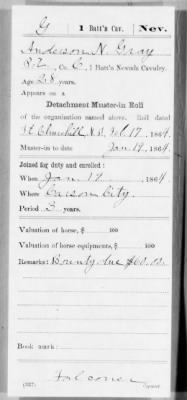 G 1 Batt'n Cav. Nev.
Anderson N. Gray
Co. C, 1 Batt'n Nevada Cavalry.
Age 28 years.
Appears on a
Detachment Muster-in Roll
of the organization named above. Roll dated
Ft. Churchill, N.T. Feb 17, 1864.
Muster-in to date Jan 19, 1864.
Joined for duty and enrolled:
When Jan 12, 1864
Where Carson City.
Period 3 years.
Valuation of horse, $ 100
Valuation of horse equipments, $ 100
Remarks: Bounty due $60.00
Book mark:
Falconer
(337) Copyist.